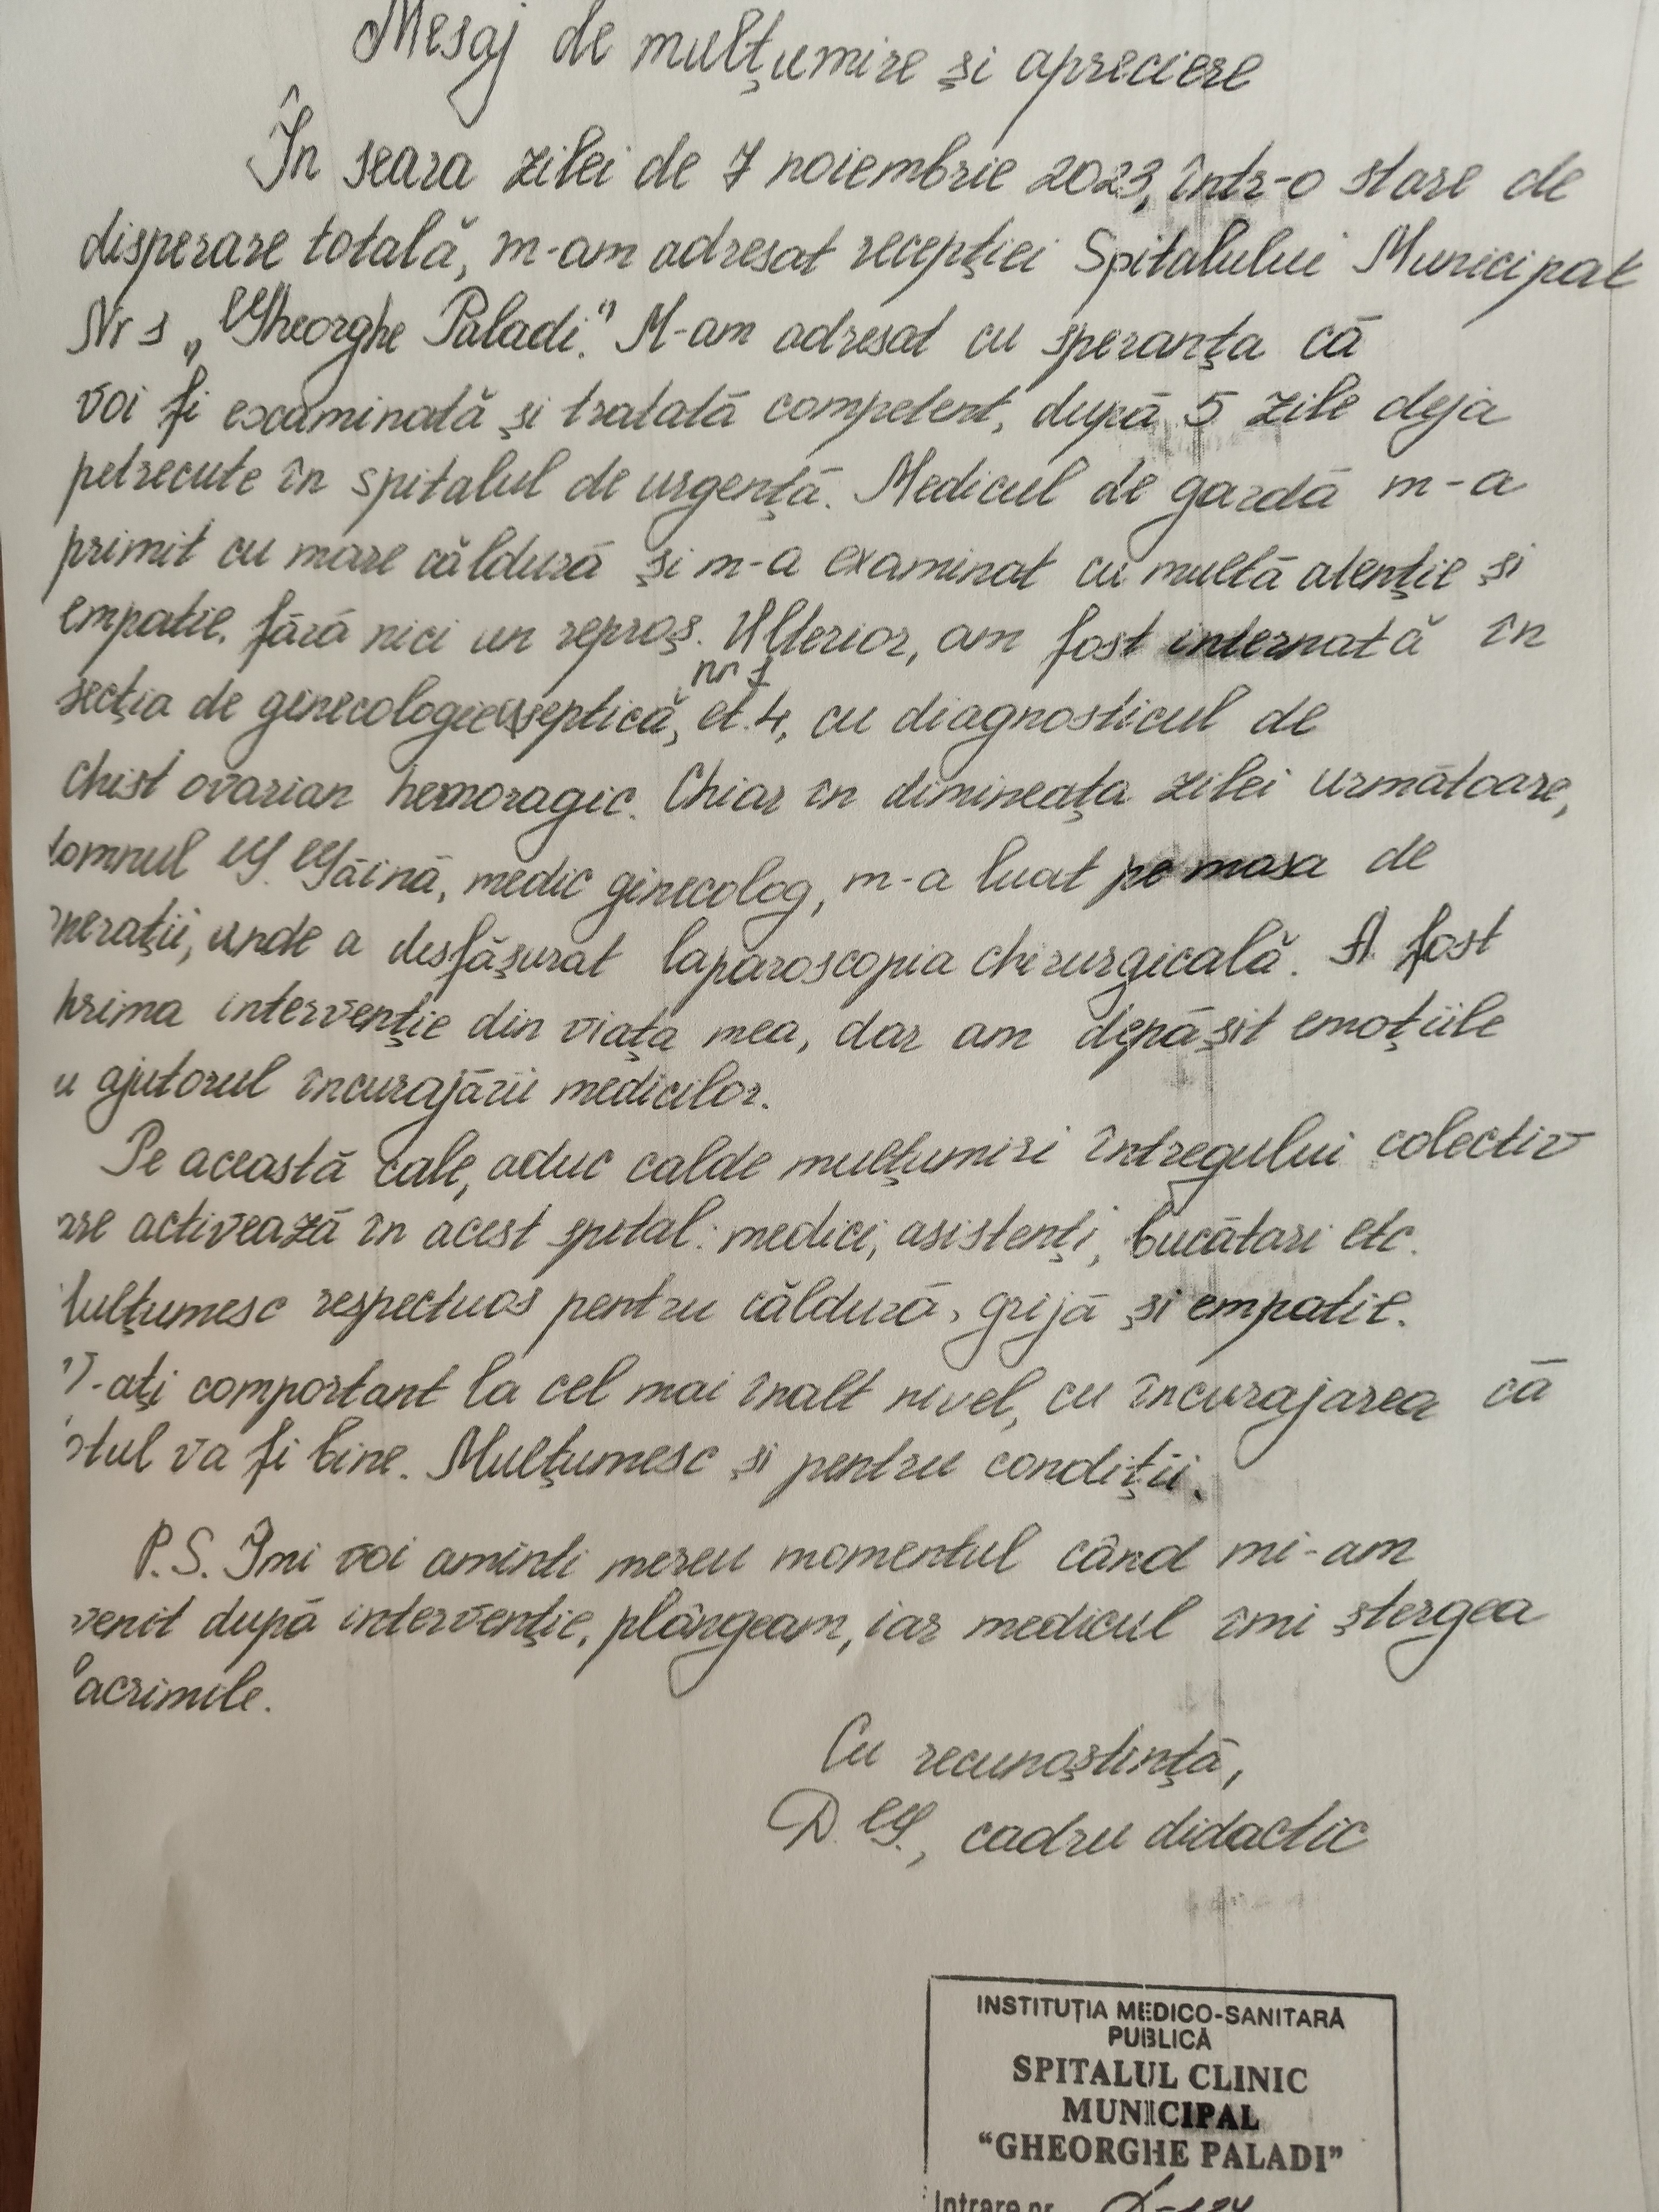 Mesaj de mulţumire şi apreciere
În seara zilei de 7 noiembrie 2023, într-o stare de
disperare totală, m-am adresat recepţiei Spitalului Municipal
Nr 1 „Gheorghe Paladi." M-am adresat cu speranţa că
voi fi examinată şi tratată competent, după 5 zile deja
petrecute în spitalul de urgenţă. Medicul de gardă m-a
primit cu mare căldură şi m-a examinat cu multă atenţie şi
empatie, fără nici un reproş. Ulterior, am fost internată în
nr 1
secţia de ginecologie aseptică, et. 4, cu diagnosticul de
chist ovarian hemoragic. Chiar în dimineaţa zilei următoare,
domnul G. Găină, medic ginecolog, m-a luat pe masa de
peraţii, unde a desfăşurat laparoscopia chirurgicală. A fost
prima intervenţie din viaţa mea, dar am depăşit emoţiile
u ajutorul încurajării medicilor.
Pe această cale, aduc calde mulţumiri întregului colectiv
are activează în acest spital: medici, asistenţi, bucătari etc.
Mulţumesc respectuos pentru căldură, grijă şi empatie.
V-aţi comportant la cel mai înalt nivel, cu încurajarea că
otul va fi bine. Mulţumesc şi pentru condiţii.
P.S. Îmi voi aminti mereu momentul când mi-am
venit după intervenţie, plângeam, iar medicul îmi ştergea
lacrimile.
Cu recunoştinţă,
D. G., cadru didactic
INSTITUŢIA MEDICO-SANITARĂ
PUBLICĂ
SPITALUL CLINIC
MUNICIPAL
"GHEORGHE PALADI"
Intrare nr.